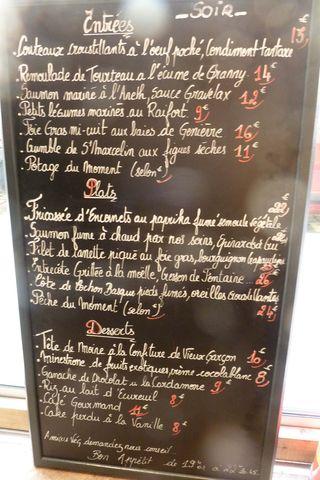 Entrées
- SOIR -
. Couteaux croustillants à l'œuf poché, Condiment tartare 13,€
. Remoulade de Tourteau à l'écume de Granny 14€
. Saumon mariné à l'Aneth, Sauce Gravelax 12€
. Petits légumes marinés au Raifort 9€
. Foie Gras mi-cuit aux baies de Genièvre 16€
. Crumble de St Marcelin aux figues sèches 11€
. Potage du Moment (selon €)
Plats
. Fricassée d'Encornets au paprika fumé semoule végétale 22€
. Saumon fumé à chaud par nos soins,
. Filet de canette piqué au foie gras, bourguignon
. Entrecôte Grillée à la moëlle, Cresson de Fontaine
. Côte de Cochon Basque pieds fumés, oreilles croustillantes
. Pêche du Moment (selon €) 24€
Desserts
. Tête de Moine à la Confiture de Vieux Garçon 10€
. Minestrone de fruits exotiques, crème coco blanc 8€
. Ganache de Chocolat à la Cardamone 9€
. Riz au lait d'Ecureuil 8€
. Café Gourmand 11€
. Cake perdu à la Vanille 8€
demandez nous conseil
Bon Appétit de 19h